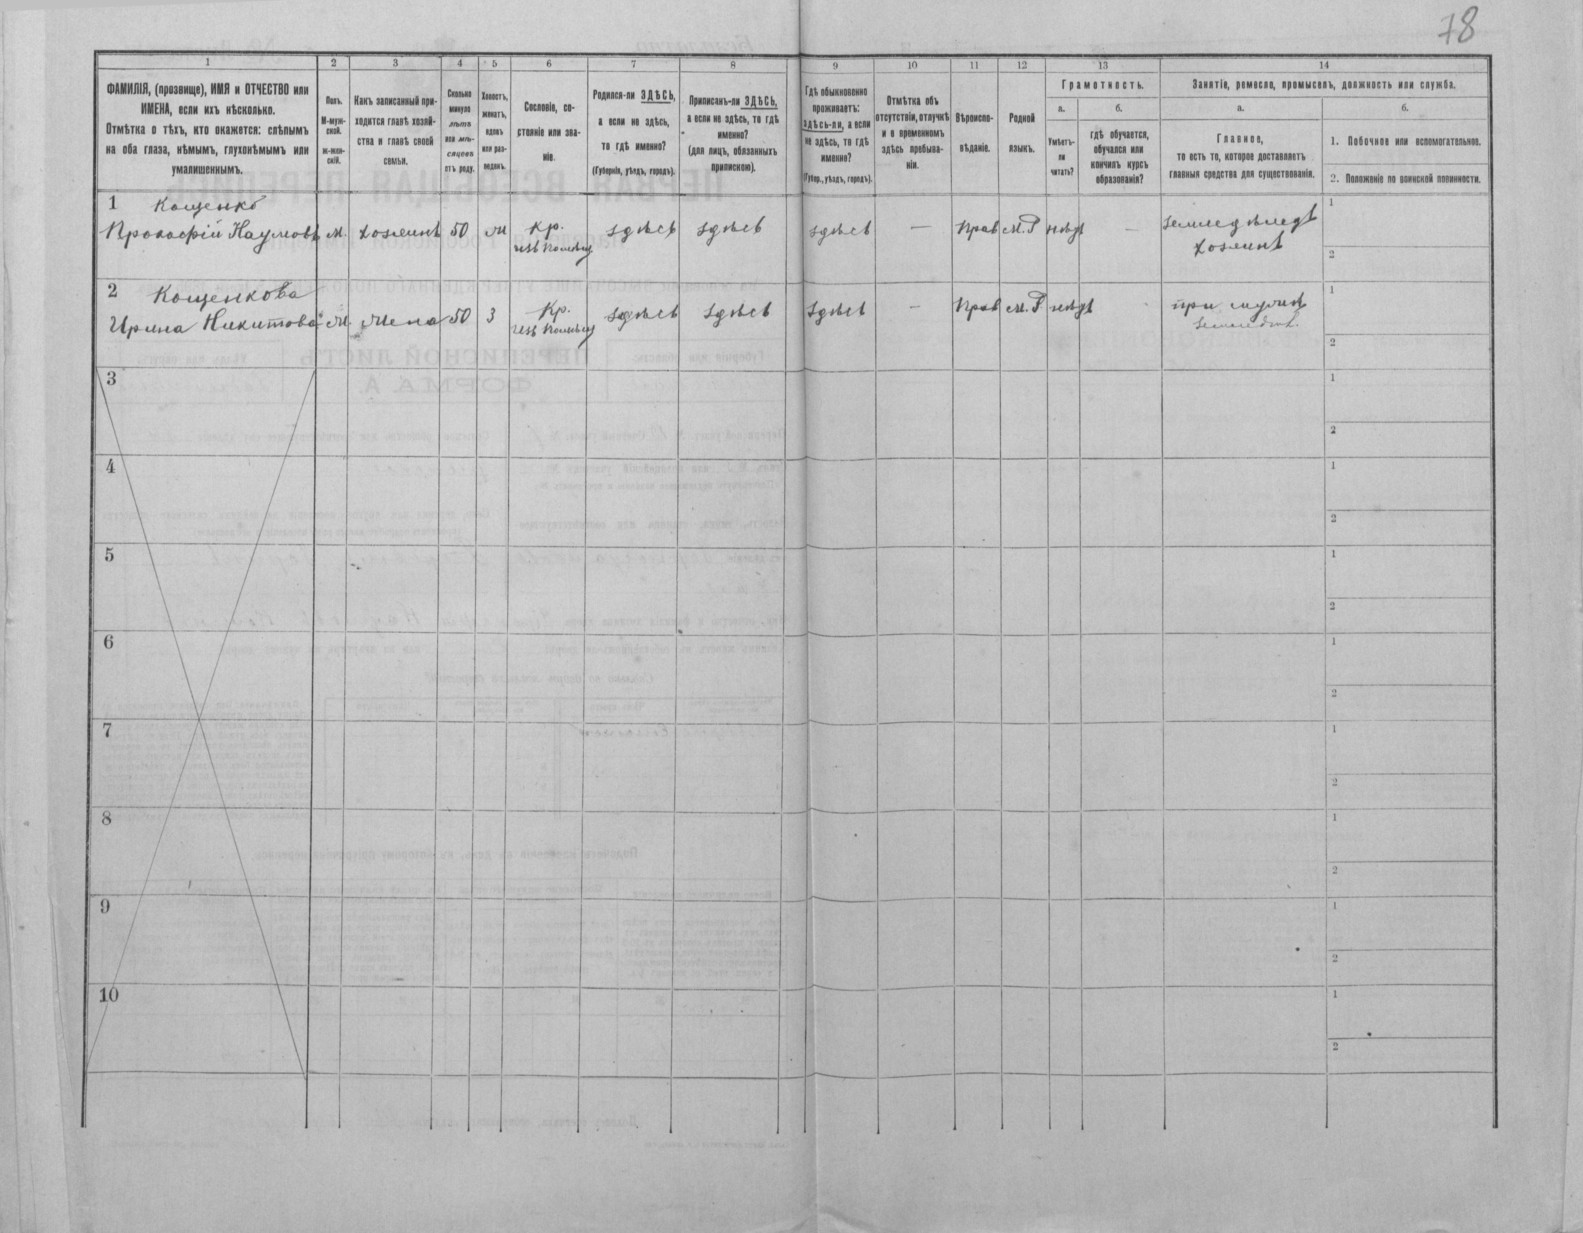 78
1
2
3
4
5
6
7
8
9
10
11
12
13
14
ФАМИЛІЯ, (прозвище), ИМЯ и ОТЧЕСТВО или
ИМЕНА, если ихъ нѣсколько.
Отмѣтка о тѣхъ, кто окажется: слѣпымъ
на оба глаза, нѣмымъ, глухонѣмымъ или
умалишеннымъ.
Полъ.
М-муж-
ской.
Ж-жен-
скій.
Какъ записанный при-
ходится главѣ хозяй-
ства и главѣ своей
семьи.
Сколько
минуло
лѣтъ
или мѣ-
сяцевъ
отъ роду.
Холостъ,
женатъ,
вдовъ
или раз-
веденъ.
Сословіе, со-
стояніе или зва-
ніе.
Родился-ли ЗДѢСЬ,
а если не здѣсь,
то гдѣ именно?
(Губернія, уѣздъ, городъ).
Приписанъ-ли ЗДѢСЬ,
а если не здѣсь, то гдѣ
именно?
(для лицъ, обязанныхъ
припискою).
Гдѣ обыкновенно
проживаетъ:
здѣсь-ли, а если
не здѣсь, то гдѣ
именно?
(Губер., уѣздъ, городъ).
Отмѣтка объ
отсутствіи, отлучкѣ
и о временномъ
здѣсь пребыва-
ніи.
Вѣроиспо-
вѣданіе.
Родной
языкъ.
Грамотность.
а.
Умѣетъ-
ли
читать?
б.
гдѣ обучается,
обучался или
кончилъ курсъ
образованія?
Занятіе, ремесло, промыселъ, должность или служба.
а.
Главное,
то есть то, которое доставляетъ
главныя средства для существованія.
б.
1. Побочное или вспомогательное.
2. Положеніе по воинской повинности.
1 Кощенко
Прокофій Наумовъ м. хозяинъ 50 ж Кр. здѣсь здѣсь здѣсь — Прав М.Р нѣтъ — земледѣлецъ
хозяинъ
1
2
2 Кощенкова
Ирина Никитова ж. жена 50 З Кр. здѣсь здѣсь здѣсь — Прав М.Р нѣтъ при мужѣ
1
2
3
1
2
4
1
2
5
1
2
6
1
2
7
1
2
8
1
2
9
1
2
10
1
2